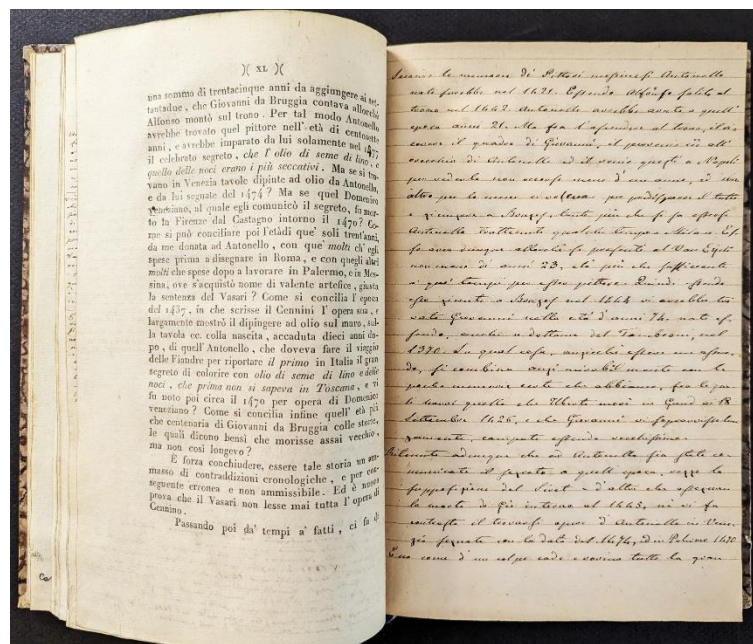 )( XL )(
una somma di trentacinque anni da aggiungere ai set-
tantadue, che Giovanni da Bruggia contava allorchè
Alfonso montò sul trono. Per tal modo Antonello
avrebbe trovato quel pittore nell'età di centosette
anni, e avrebbe imparato da lui solamente nel 1477
il celebrato segreto, che l'olio di seme di lino, e
quello delle noci erano i più seccativi. Ma se si tro-
vano in Venezia tavole dipinte ad olio da Antonello,
e da lui segnate del 1474? Ma se quel Domenico
veneziano, al quale egli comunicò il segreto, fu mor-
to in Firenze dal Castagno intorno il 1470? Co-
me si può conciliare poi l'etàdi que' soli trent'anni,
da me donata ad Antonello, con que' molti ch'egli
spese prima a disegnare in Roma, e con quegli altri
molti che spese dopo a lavorare in Palermo, e in Mes-
sina, ove s'acquistò nome di valente artefice, giusta
la sentenza del Vasari? Come si concilia l'epoca
del 1437, in che scrisse il Cennini l'opera sua, e
largamente mostrò il dipingere ad olio sul muro, sul-
la tavola ec. colla nascita, accaduta dieci anni da-
po, di quell'Antonello, che doveva fare il viaggio
delle Fiandre per riportare il primo in Italia il gran
segreto di colorire con olio di seme di lino e delle
noci, che prima non si sapeva in Toscana, e vi
fu noto poi circa il 1470 per opera di Domenico
veneziano? Come si concilia infine quell'età più
che centenaria di Giovanni da Bruggia colle storie,
le quali dicono bensì che morisse assai vecchio,
ma non così longevo?
È forza conchiudere, essere tale storia un am-
masso di contraddizioni cronologiche, e per con-
seguente erronea e non ammissibile. Ed è nuova
prova che il Vasari non lesse mai tutta l'opera di
Cennino.
Passando poi da' tempi a' fatti, ci fa di
Secondo le memorie de' Pittori messinesi Antonello
nato sarebbe nel 1421. Essendo Alfonso salito al
trono nel 1442 Antonello avrebbe avuto a quell'
epoca anni 21. Ma fra l'ascendere al trono, il ri-
cevere il quadro di Giovanni, il pervenire all'
orecchio di Antonello ed il venire questi a Napoli
per vederlo non accorse meno d'un anno, ed un
altro per lo meno
e giungere a Bruges, tanto più che si sa essersi
Antonello trattenuto qualche tempo a Milano. Es-
so avea dunque allorchè si presentò al Van Eyck
non meno di anni 23, età più che sufficiente
a que' tempi per esser pittore. Quindi essendo
esso giunto a Bruges nel 1444 vi avrebbe tro-
vato Giovanni nella età d'anni 74, nato es-
sendo, anche a dettame del Tambroni, nel
1370. La qual cosa, anzichè essere un assur-
do, si combina anzi mirabilmente con le
poche memorie certe che abbiamo, fra le qua-
li havvi quella che Uberto morì in Gand ai 18
Settembre 1426, e che Giovanni vi sopravvisse
campato essendo vecchissimo.
Ritenuto adunque che ad Antonello sia stato co-
municato il segreto a quell'epoca, regge la
supposizione del e d'altri che
la morte di Gio intorno al 1445, nè vi fa
contrasto il trovarsi opere d'Antonello in Vene-
zia segnate con la data del 1474, ed in Palermo 1470
Ecco come d'un colpo cade e rovina tutta la gran